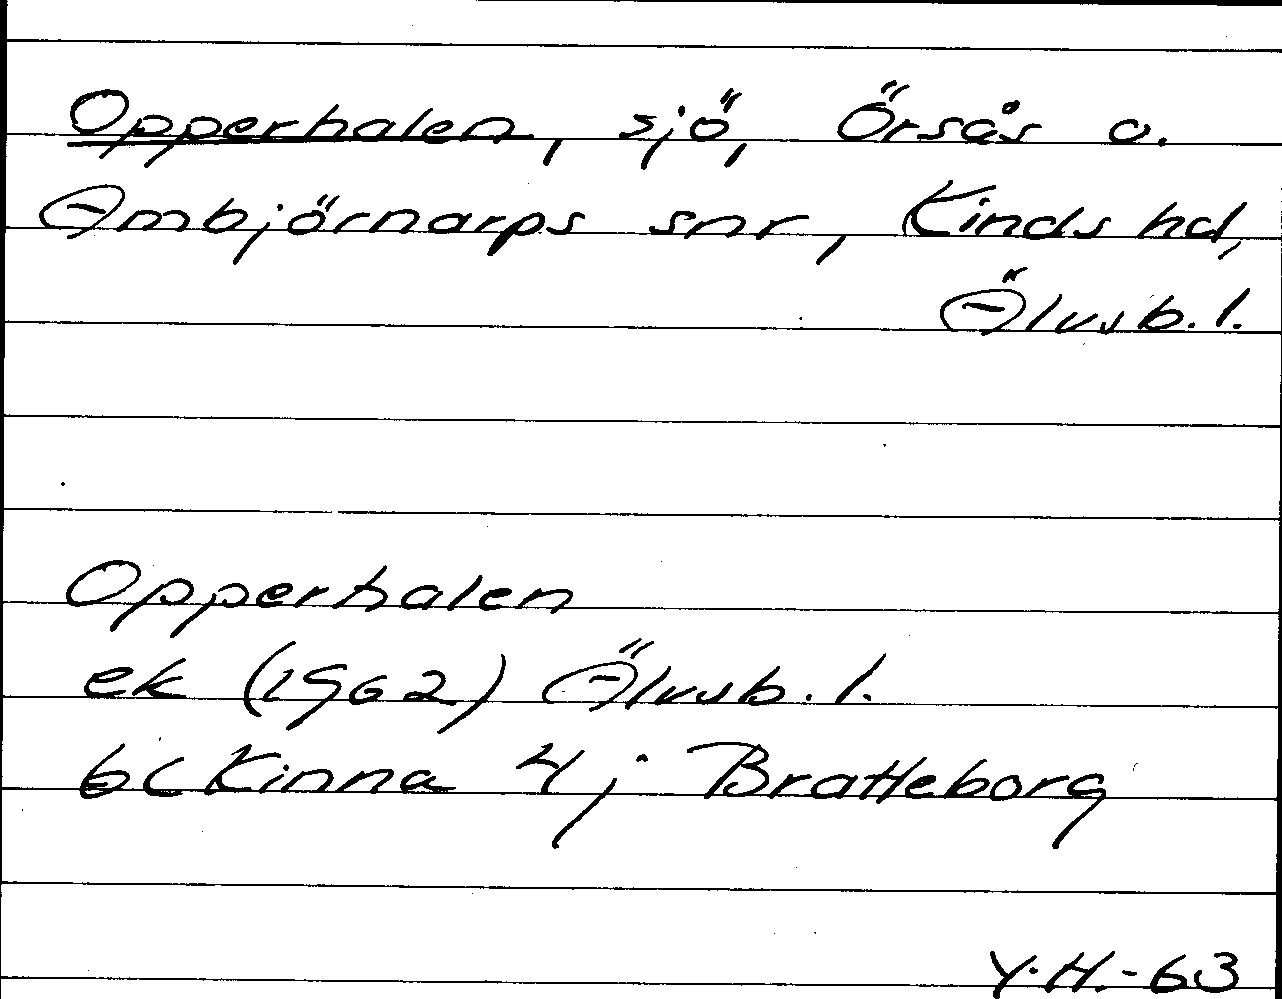 Opperhalen, sjö, Örsås o.
Ambjörnarps snr, Kinds hd,
Älvsb.l.
Opperhalen
ek (1962) Älvsb.l.
6C Kinna 4j Bratteborg
Y.H.-63